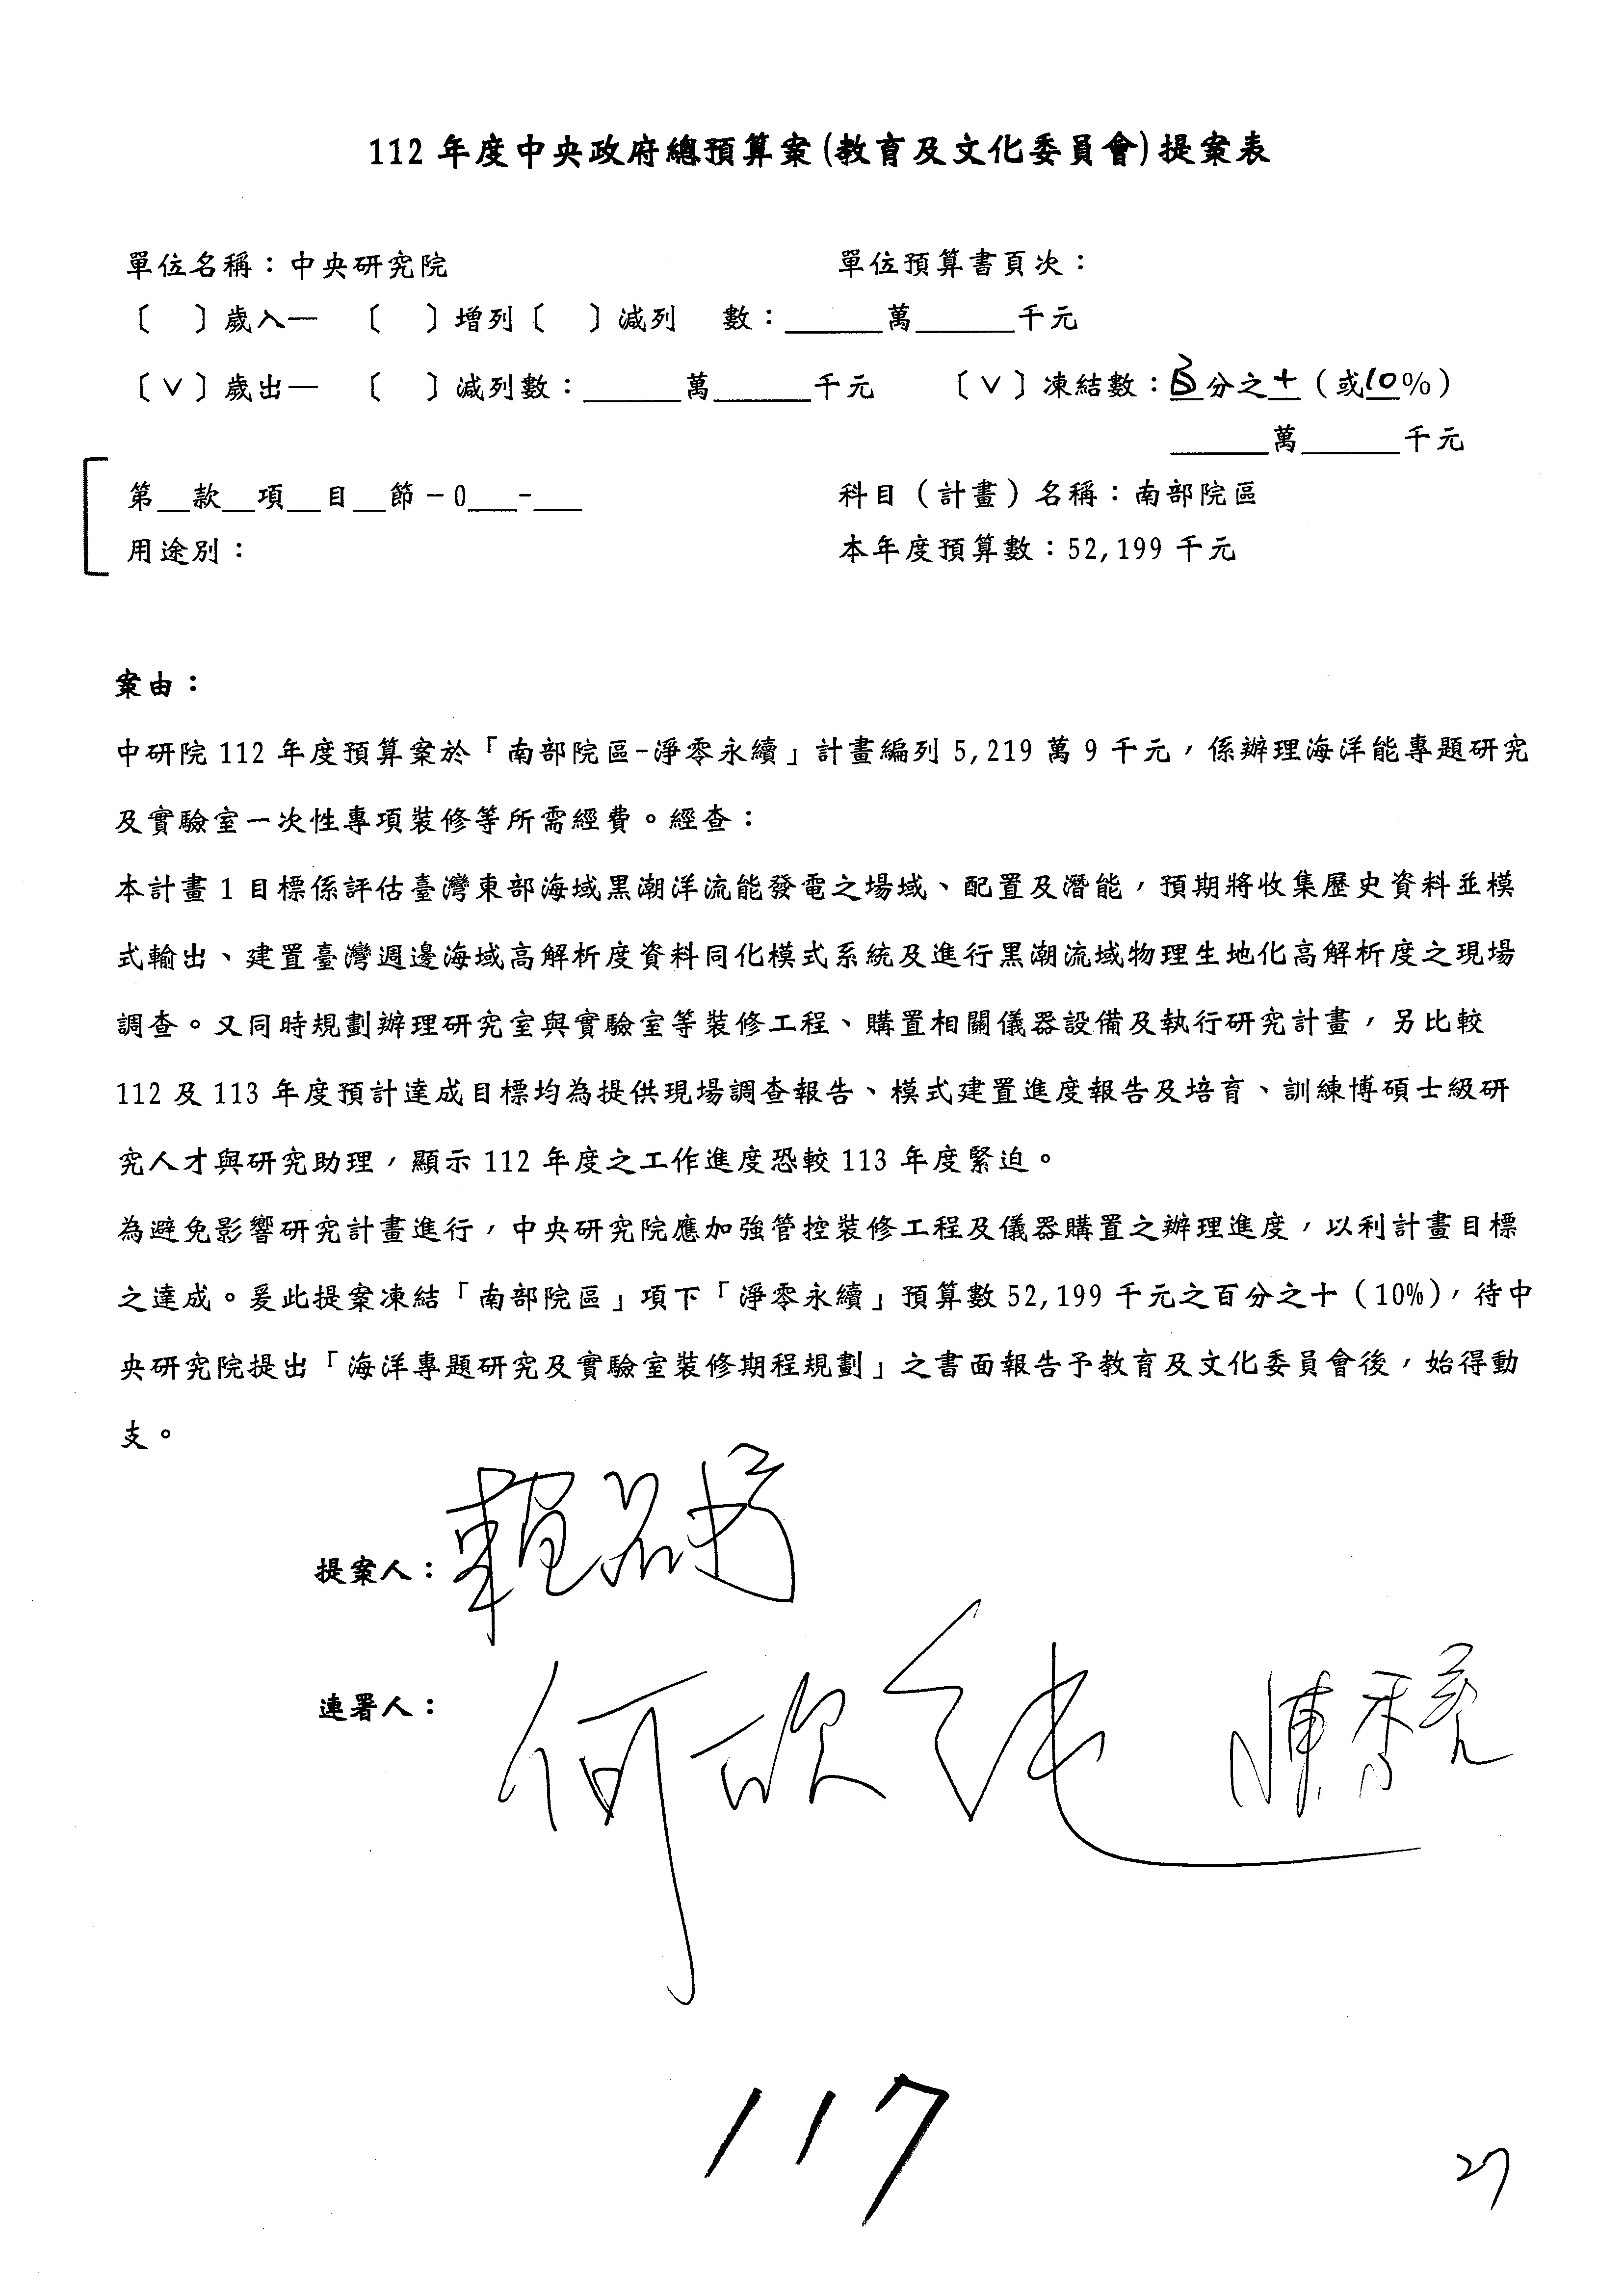 112 年度中央政府總預算案(教育及文化委員會)提案表
單位名稱：中央研究院 單位預算書頁次：
〔 〕歲入— 〔 〕增列〔 〕減列 數：______萬______千元
〔V〕歲出— 〔 〕減列數：______萬______千元 〔V〕凍結數：百分之十（或10%）
______萬______千元
第__款__項__目__節－0___-___ 科目（計畫）名稱：南部院區
用途別： 本年度預算數：52,199 千元
案由：
中研院 112 年度預算案於「南部院區-淨零永續」計畫編列 5,219 萬 9 千元，係辦理海洋能專題研究
及實驗室一次性專項裝修等所需經費。經查：
本計畫 1 目標係評估臺灣東部海域黑潮洋流能發電之場域、配置及潛能，預期將收集歷史資料並模
式輸出、建置臺灣週邊海域高解析度資料同化模式系統及進行黑潮流域物理生地化高解析度之現場
調查。又同時規劃辦理研究室與實驗室等裝修工程、購置相關儀器設備及執行研究計畫，另比較
112 及 113 年度預計達成目標均為提供現場調查報告、模式建置進度報告及培育、訓練博碩士級研
究人才與研究助理，顯示 112 年度之工作進度恐較 113 年度緊迫。
為避免影響研究計畫進行，中央研究院應加強管控裝修工程及儀器購置之辦理進度，以利計畫目標
之達成。爰此提案凍結「南部院區」項下「淨零永續」預算數 52,199 千元之百分之十（10%），待中
央研究院提出「海洋專題研究及實驗室裝修期程規劃」之書面報告予教育及文化委員會後，始得動
支。
提案人：賴品妤
連署人：何欣純 陳秀寳
117
27